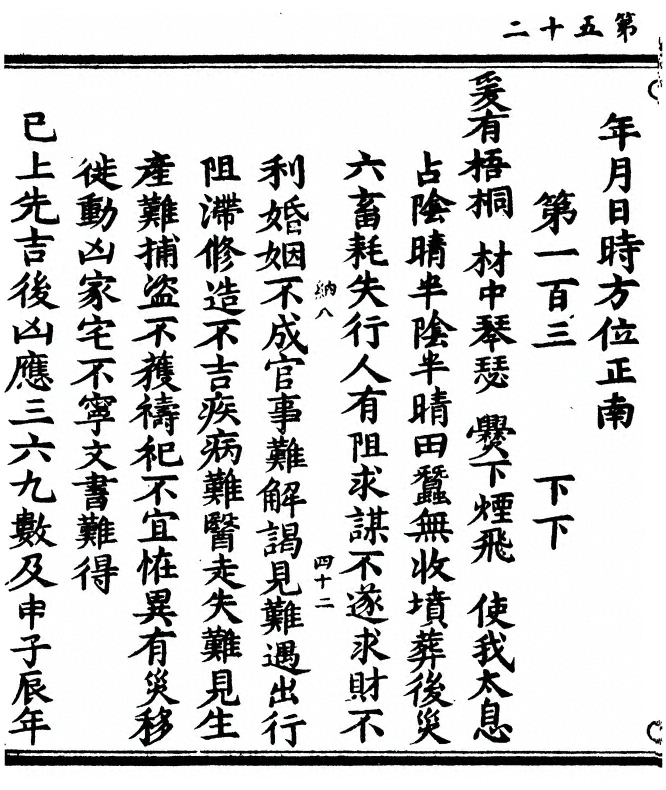 第五十二
年月日時方位正南
第一百三　下下
爰有梧桐　材中琴瑟　爨下煙飛　使我太息
占陰晴半陰半晴田蠶無收墳葬後災
六畜耗失行人有阻求謀不遂求財不
納八
四十二
利婚姻不成官事難解謁見難遇出行
阻滯修造不吉疾病難醫走失難見生
產難捕盜不獲禱祀不宜恠異有災移
徙動凶家宅不寧文書難得
已上先吉後凶應三六九數及申子辰年